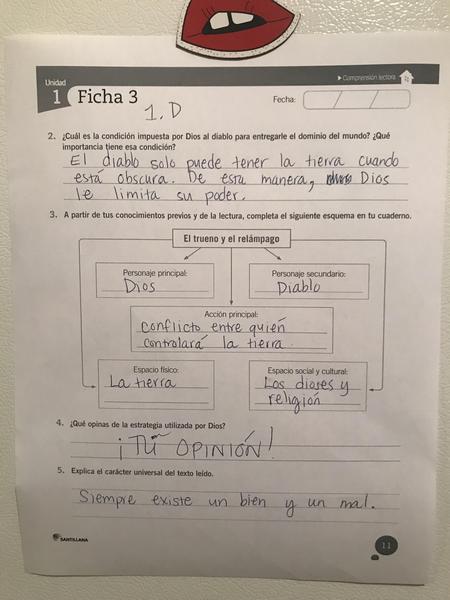 Unidad
1 Ficha 3
Comprensión lectora
Fecha:
1. D
2. ¿Cuál es la condición impuesta por Dios al diablo para entregarle el dominio del mundo? ¿Qué
importancia tiene esa condición?
El diablo solo puede tener la tierra cuando
está obscura. De esta manera, Dios
le limita su poder.
3. A partir de tus conocimientos previos y de la lectura, completa el siguiente esquema en tu cuaderno.
El trueno y el relámpago
Personaje principal:
Dios
Personaje secundario:
Diablo
Acción principal:
Conflicto entre quién
controlará la tierra.
Espacio físico:
La tierra
Espacio social y cultural:
Los dioses y
religión
4. ¿Qué opinas de la estrategia utilizada por Dios?
¡TU OPINIÓN!
5. Explica el carácter universal del texto leído.
Siempre existe un bien y un mal.
SANTILLANA
11